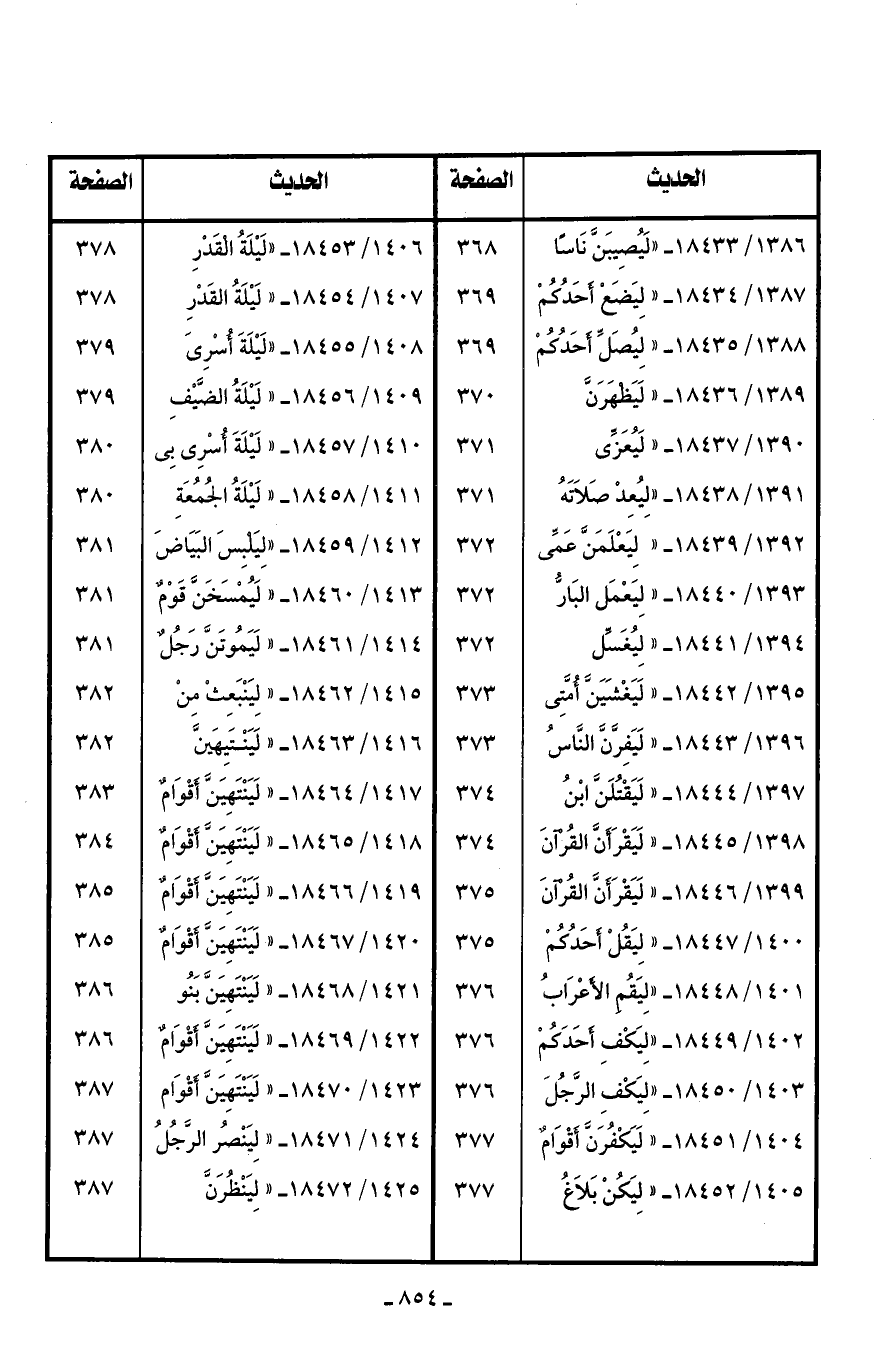 الحديث الصفحة الحديث الصفحة
١٣٨٦/ ١٨٤٣٣ـ «لَيُصِيبَنَّ نَاسًا ٣٦٨ ١٤٠٦/ ١٨٤٥٣ـ «لَيْلَةُ الْقَدْرِ ٣٧٨
١٣٨٧/ ١٨٤٣٤ـ « لِيَضَعْ أَحَدُكُمْ ٣٦٩ ١٤٠٧/ ١٨٤٥٤ـ « لَيْلَةُ القَدْرِ ٣٧٨
١٣٨٨/ ١٨٤٣٥ـ « لِيُصَلِّ أَحَدُكُمْ ٣٦٩ ١٤٠٨/ ١٨٤٥٥ـ «لَيْلَةَ أُسْرِىَ ٣٧٩
١٣٨٩/ ١٨٤٣٦ـ « لَيَظْهَرَنَّ ٣٧٠ ١٤٠٩/ ١٨٤٥٦ـ « لَيْلَةُ الضَّيْفِ ٣٧٩
١٣٩٠/ ١٨٤٣٧ـ « لَيُعَزِّى ٣٧١ ١٤١٠/ ١٨٤٥٧ـ « لَيْلَةَ أُسْرِى بِى ٣٨٠
١٣٩١/ ١٨٤٣٨ـ «لِيُعِدْ صَلَاتَهُ ٣٧١ ١٤١١/ ١٨٤٥٨ـ « لَيْلَةُ الجُمُعَةِ ٣٨٠
١٣٩٢/ ١٨٤٣٩ـ « لِيَعْلَمَنَّ عَمِّى ٣٧٢ ١٤١٢/ ١٨٤٥٩ـ «لِيَلْبِسَ البَيَاضَ ٣٨١
١٣٩٣/ ١٨٤٤٠ـ « لِيَعْمَلِ البَارُّ ٣٧٢ ١٤١٣/ ١٨٤٦٠ـ « لَيُمْسَخَنَّ قَوْمٌ ٣٨١
١٣٩٤/ ١٨٤٤١ـ « لِيُغَسِّلِ ٣٧٢ ١٤١٤/ ١٨٤٦١ـ « لَيَمُوتَنَّ رَجُلٌ ٣٨١
١٣٩٥/ ١٨٤٤٢ـ « لَيَغْشَيَنَّ أُمَّتِى ٣٧٣ ١٤١٥/ ١٨٤٦٢ـ « لِيَنْبَعِثْ مِنْ ٣٨٢
١٣٩٦/ ١٨٤٤٣ـ « لَيَفِرَّنَّ النَّاسُ ٣٧٣ ١٤١٦/ ١٨٤٦٣ـ « لَيَنْتَهِيَنَّ ٣٨٢
١٣٩٧/ ١٨٤٤٤ـ « لَيَقْتُلَنَّ ابْنُ ٣٧٤ ١٤١٧/ ١٨٤٦٤ـ « لَيَنْتَهِيَنَّ أَقْوَامٌ ٣٨٣
١٣٩٨/ ١٨٤٤٥ـ « لَيَقْرَأَنَّ القُرْآنَ ٣٧٤ ١٤١٨/ ١٨٤٦٥ـ « لَيَنْتَهِيَنَّ أَقْوَامٌ ٣٨٤
١٣٩٩/ ١٨٤٤٦ـ « لَيَقْرَأَنَّ القُرْآنَ ٣٧٥ ١٤١٩/ ١٨٤٦٦ـ « لَيَنْتَهِيَنَّ أَقْوَامٌ ٣٨٥
١٤٠٠/ ١٨٤٤٧ـ « لِيَقُلْ أَحَدُكُمْ ٣٧٥ ١٤٢٠/ ١٨٤٦٧ـ « لَيَنْتَهِيَنَّ أَقْوَامٌ ٣٨٥
١٤٠١/ ١٨٤٤٨ـ «لِيَقُمِ الأَعْرَابُ ٣٧٦ ١٤٢١/ ١٨٤٦٨ـ « لَيَنْتَهِيَنَّ بَنُو ٣٨٦
١٤٠٢/ ١٨٤٤٩ـ «لِيَكْفِ أَحَدَكُمْ ٣٧٦ ١٤٢٢/ ١٨٤٦٩ـ « لَيَنْتَهِيَنَّ أَقْوَامٌ ٣٨٦
١٤٠٣/ ١٨٤٥٠ـ «لِيَكْفِ الرَّجُلَ ٣٧٦ ١٤٢٣/ ١٨٤٧٠ـ « لَيَنْتَهِيَنَّ أَقْوَام ٣٨٧
١٤٠٤/ ١٨٤٥١ـ « لَيَكْفُرَنَّ أَقْوَامٌ ٣٧٧ ١٤٢٤/ ١٨٤٧١ـ « لِيَنْصُرِ الرَّجُلُ ٣٨٧
١٤٠٥/ ١٨٤٥٢ـ « لِيَكُنْ بَلَاغُ ٣٧٧ ١٤٢٥/ ١٨٤٧٢ـ « لِيَنْظُرَنَّ ٣٨٧
ـ ٨٥٤ ـ